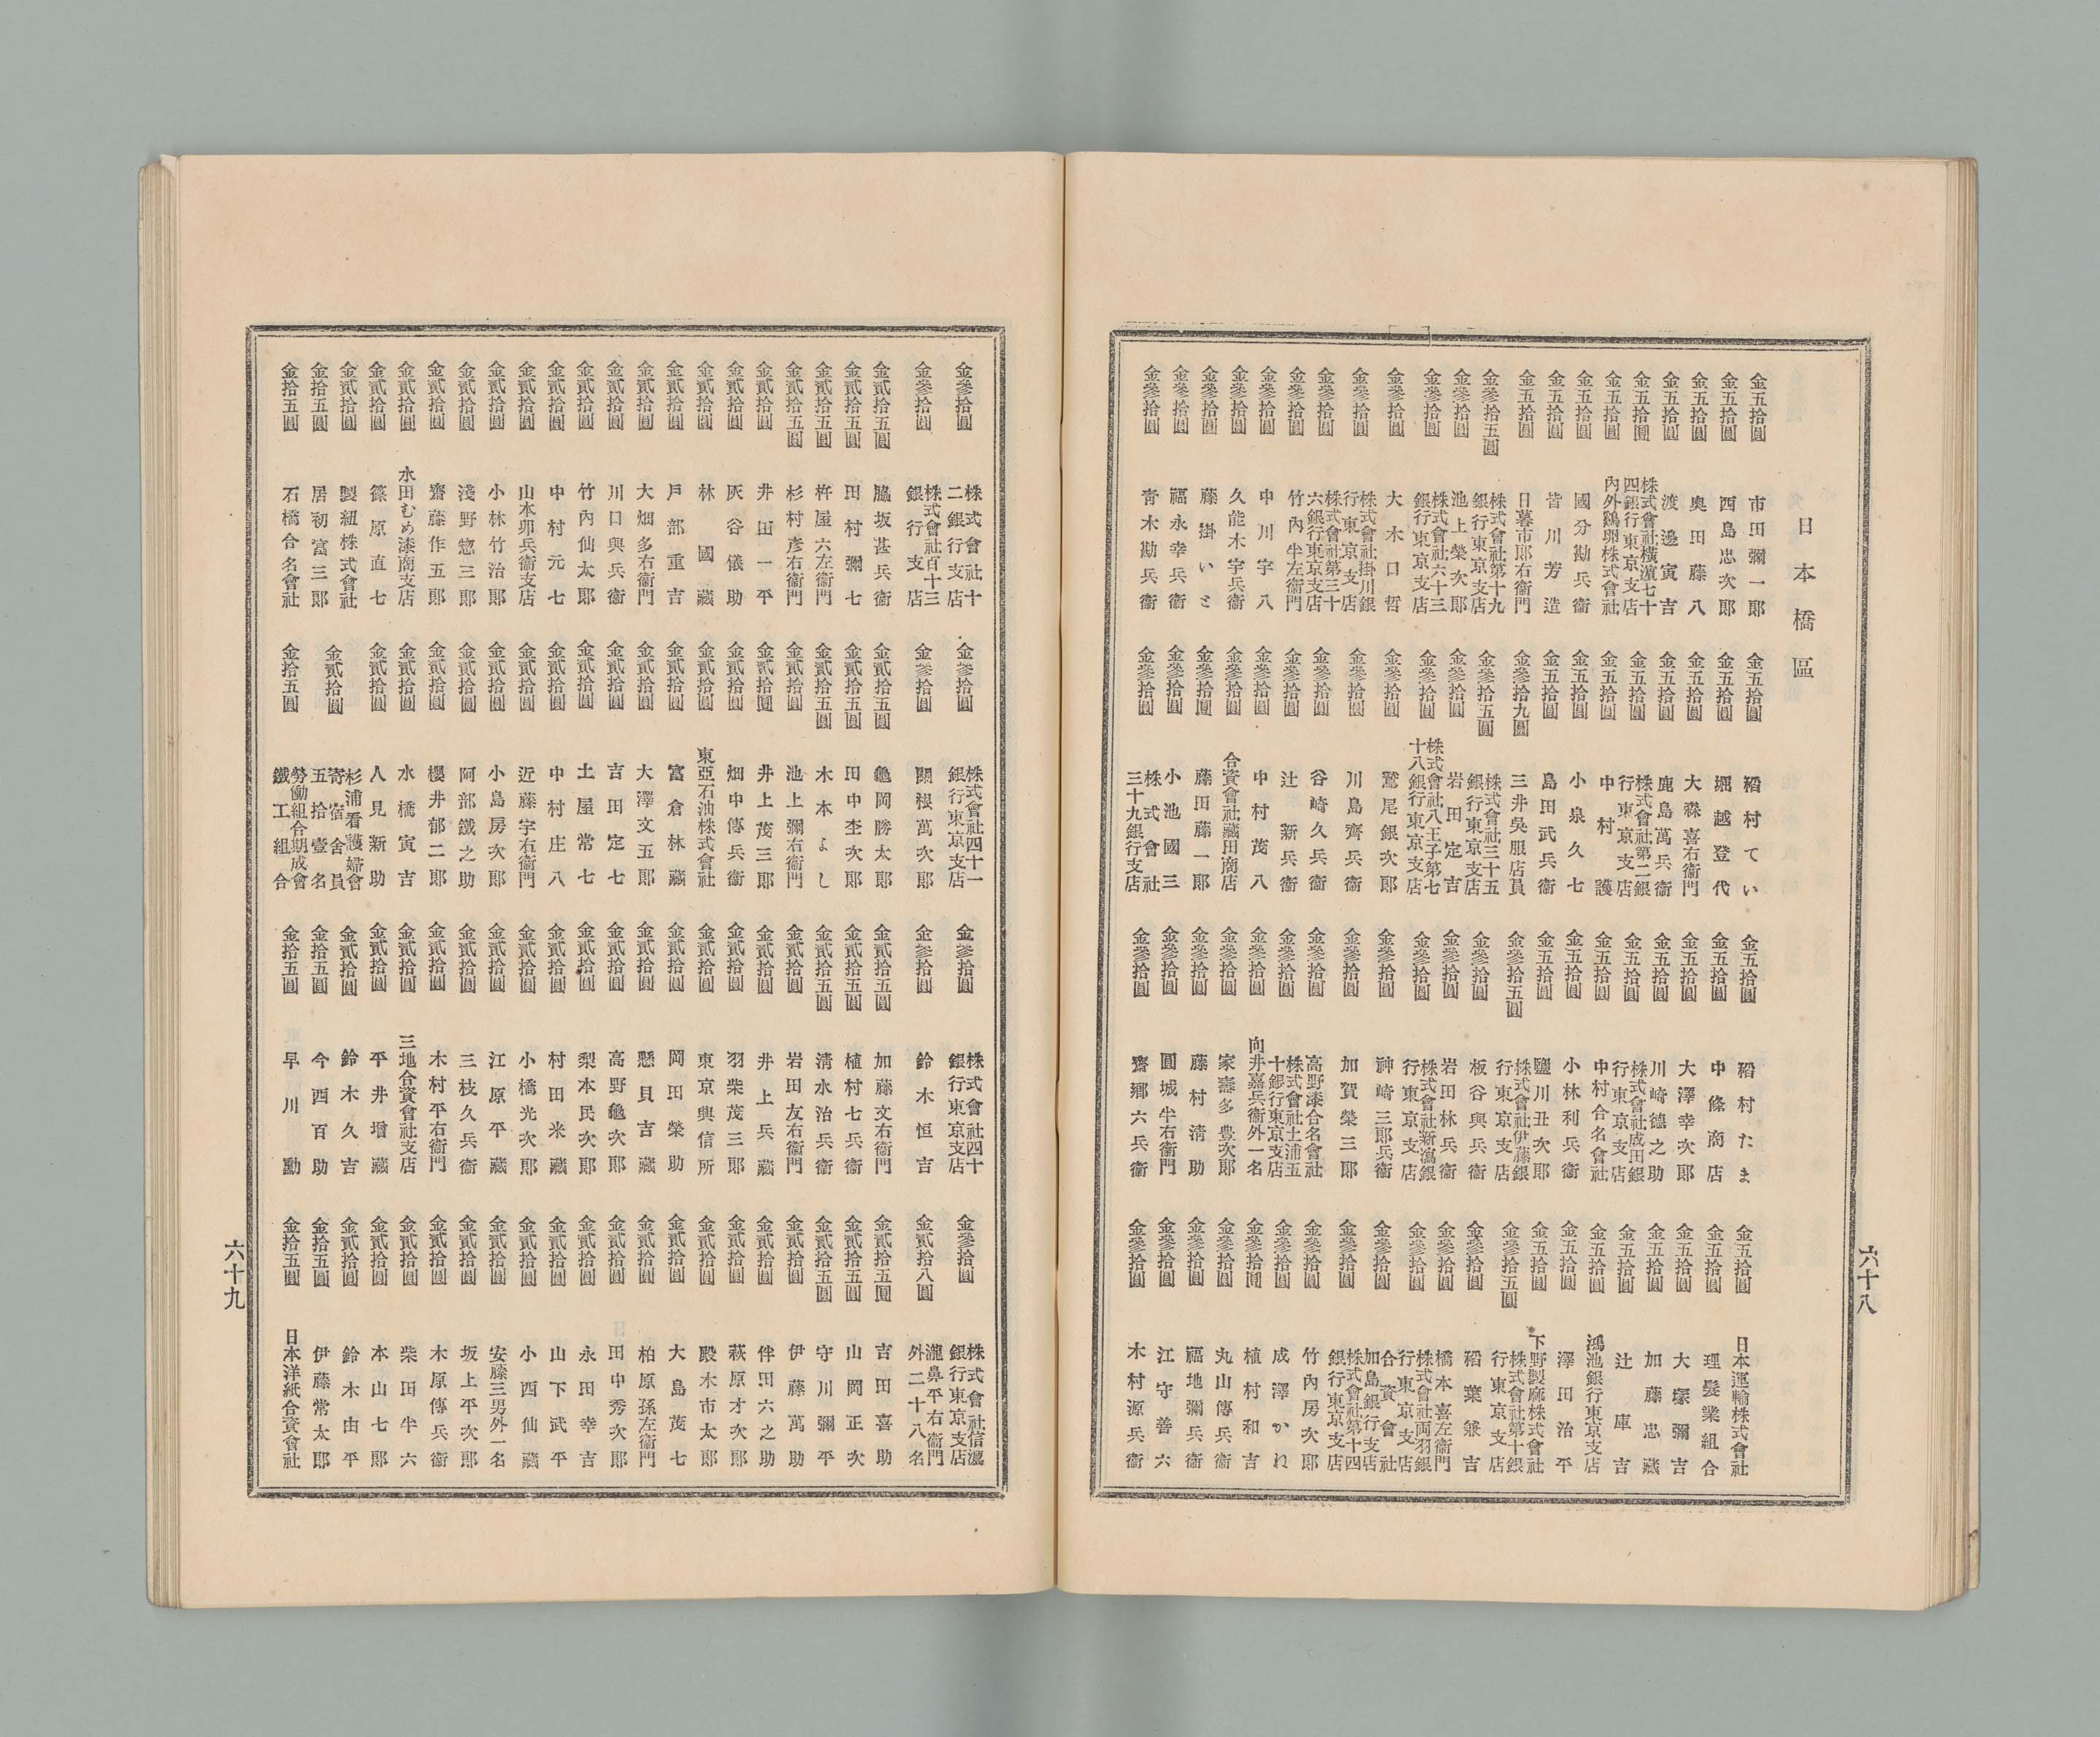 日本橋區
金五拾圓 市田彌一郎
金五拾圓 西島忠次郎
金五拾圓 奥田藤八
金五拾圓 渡邊寅吉
金五拾圓 株式會社橫濱七十四銀行東京支店
金五拾圓 內外鷄卵株式會社
金五拾圓 國分勘兵衞
金五拾圓 皆川芳造
金五拾圓 日暮市郎右衞門
金參拾五圓 株式會社第十九銀行東京支店
金參拾圓 池上榮次郎
金參拾圓 株式會社六十三銀行東京支店
金參拾圓 大木口哲
金參拾圓 株式會社掛川銀行東京支店
金參拾圓 株式會社第三十六銀行東京支店
金參拾圓 竹內半左衞門
金參拾圓 中川宇八
金參拾圓 久能木宇兵衞
金參拾圓 藤掛いと
金參拾圓 福永幸兵衞
金參拾圓 青木勘兵衞
金五拾圓 稻村てい
金五拾圓 堀越登代
金五拾圓 大森喜右衞門
金五拾圓 鹿島萬兵衞
金五拾圓 株式會社第二銀行東京支店
金五拾圓 中村護
金五拾圓 小泉久七
金五拾圓 島田武兵衞
金參拾九圓 三井吳服店員
金參拾五圓 株式會社三十五銀行東京支店
金參拾圓 岩田定吉
金參拾圓 株式會社八王子第七十八銀行東京支店
金參拾圓 鷲尾銀次郎
金參拾圓 川島齊兵衞
金參拾圓 谷崎久兵衞
金參拾圓 辻新兵衞
金參拾圓 中村茂八
金參拾圓 合資會社藏田商店
金參拾圓 藤田藤一郎
金參拾圓 小池國三
金參拾圓 株式會社三十九銀行支店
金五拾圓 稻村たま
金五拾圓 中條商店
金五拾圓 大澤幸次郎
金五拾圓 川崎德之助
金五拾圓 株式會社成田銀行東京支店
金五拾圓 中村合名會社
金五拾圓 小林利兵衞
金五拾圓 鹽川丑次郎
金參拾五圓 株式會社伊藤銀行東京支店
金參拾圓 板谷與兵衞
金參拾圓 岩田林兵衞
金參拾圓 株式會社新潟銀行東京支店
金參拾圓 神崎三郎兵衞
金參拾圓 加賀榮三郎
金參拾圓 高野漆合名會社
金參拾圓 株式會社土浦五十銀行東京支店
金參拾圓 向井嘉兵衞外一名
金參拾圓 家壽多豊次郎
金參拾圓 藤村清助
金參拾圓 圓城半右衞門
金參拾圓 齋鄉六兵衞
金五拾圓 日本運輸株式會社
金五拾圓 理髮業組合
金五拾圓 大塚彌吉
金五拾圓 加藤忠藏
金五拾圓 辻庫吉
金五拾圓 鴻池銀行東京支店
金五拾圓 澤田治平
金五拾圓 下野製麻株式會社
金參拾五圓 株式會社第十銀行東京支店
金參拾圓 稻葉兼吉
金參拾圓 橋本喜左衞門
金參拾圓 株式會社両羽銀行東京支店
金參拾圓 合資會社加島銀行支店
金參拾圓 株式會社第十四銀行東京支店
金參拾圓 竹內房次郎
金參拾圓 成澤かね
金參拾圓 植村和吉
金參拾圓 丸山傳兵衞
金參拾圓 福地彌兵衞
金參拾圓 江守善六
金參拾圓 木村源兵衞
六十八
金參拾圓 株式會社十二銀行支店
金參拾圓 株式會社百十三銀行支店
金貳拾五圓 脇坂甚兵衞
金貳拾五圓 田村彌七
金貳拾五圓 杵屋六左衞門
金貳拾五圓 杉村彥右衞門
金貳拾圓 井田一平
金貳拾圓 灰谷儀助
金貳拾圓 林國藏
金貳拾圓 戶部重吉
金貳拾圓 大畑多右衞門
金貳拾圓 川口興兵衞
金貳拾圓 竹內仙太郎
金貳拾圓 中村元七
金貳拾圓 山本卯兵衞支店
金貳拾圓 小林竹治郎
金貳拾圓 淺野惣三郎
金貳拾圓 齋藤作五郎
金貳拾圓 水田むめ漆商支店
金貳拾圓 篠原直七
金貳拾圓 製紐株式會社
金拾五圓 居初富三郎
金拾五圓 石橋合名會社
金參拾圓 株式會社四十一銀行東京支店
金參拾圓 關根萬次郎
金貳拾五圓 龜岡勝太郎
金貳拾五圓 田中杢次郎
金貳拾五圓 木本よし
金貳拾圓 池上彌右衞門
金貳拾圓 井上茂三郎
金貳拾圓 畑中傳兵衞
金貳拾圓 東亞石油株式會社
金貳拾圓 富倉林藏
金貳拾圓 大澤文五郎
金貳拾圓 吉田定七
金貳拾圓 土屋常七
金貳拾圓 中村庄八
金貳拾圓 近藤宇右衞門
金貳拾圓 小島房次郎
金貳拾圓 阿部鐵之助
金貳拾圓 櫻井郁二郎
金貳拾圓 水橋寅吉
金貳拾圓 人見新助
金貳拾圓 杉浦看護婦會寄宿舍員五拾壹名
金拾五圓 勞働組合期成會鐵工組合
金參拾圓 株式會社四十銀行東京支店
金參拾圓 鈴木恒吉
金貳拾五圓 加藤文右衞門
金貳拾五圓 植村七兵衞
金貳拾五圓 清水治兵衞
金貳拾圓 岩田友右衞門
金貳拾圓 井上兵藏
金貳拾圓 羽柴茂三郎
金貳拾圓 東京興信所
金貳拾圓 岡田榮助
金貳拾圓 懸貝吉藏
金貳拾圓 高野龜次郎
金貳拾圓 梨本民次郎
金貳拾圓 村田米藏
金貳拾圓 小橋光次郎
金貳拾圓 江原平藏
金貳拾圓 三枝久兵衞
金貳拾圓 木村平右衞門
金貳拾圓 三地合資會社支店
金貳拾圓 平井增藏
金貳拾圓 鈴木久吉
金拾五圓 今西百助
金拾五圓 早川勳
金參拾圓 株式會社信濃銀行東京支店
金貳拾八圓 瀧鼻平右衞門外二十八名
金貳拾五圓 吉田喜助
金貳拾五圓 山岡正次
金貳拾五圓 守川彌平
金貳拾圓 伊藤萬助
金貳拾圓 伴田六之助
金貳拾圓 萩原才次郎
金貳拾圓 殿木市太郎
金貳拾圓 大島茂七
金貳拾圓 柏原孫左衞門
金貳拾圓 田中秀次郎
金貳拾圓 永田幸吉
金貳拾圓 山下武平
金貳拾圓 小西仙藏
金貳拾圓 安藤三男外一名
金貳拾圓 坂上平次郎
金貳拾圓 木原傳兵衞
金貳拾圓 柴田半六
金貳拾圓 本山七郎
金貳拾圓 鈴木由平
金拾五圓 伊藤常太郎
金拾五圓 日本洋紙合資會社
六十九